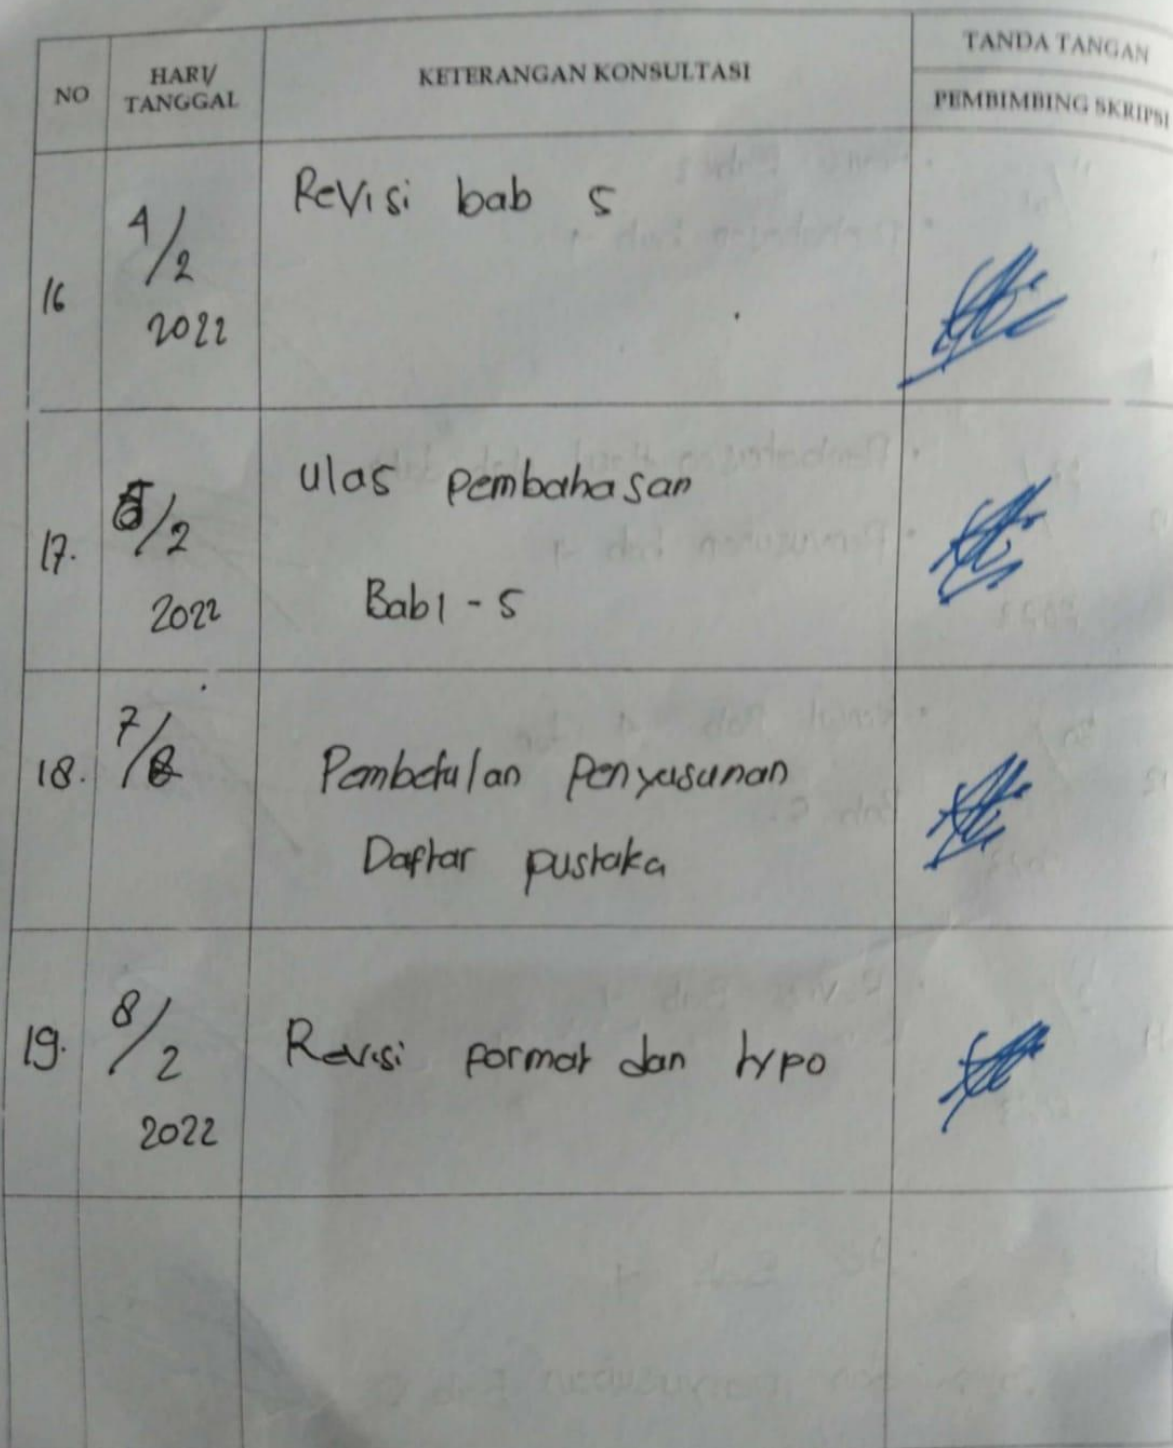 NO
HARI/
TANGGAL
KETERANGAN KONSULTASI
TANDA TANGAN
PEMBIMBING SKRIPSI
16
4/2
2022
Revisi bab 5
17.
5/2
2022
Ulas pembahasan
Bab 1 - 5
18.
7/2
Pembetulan penyusunan
Daftar pustaka
19.
8/2
2022
Revisi format dan typo